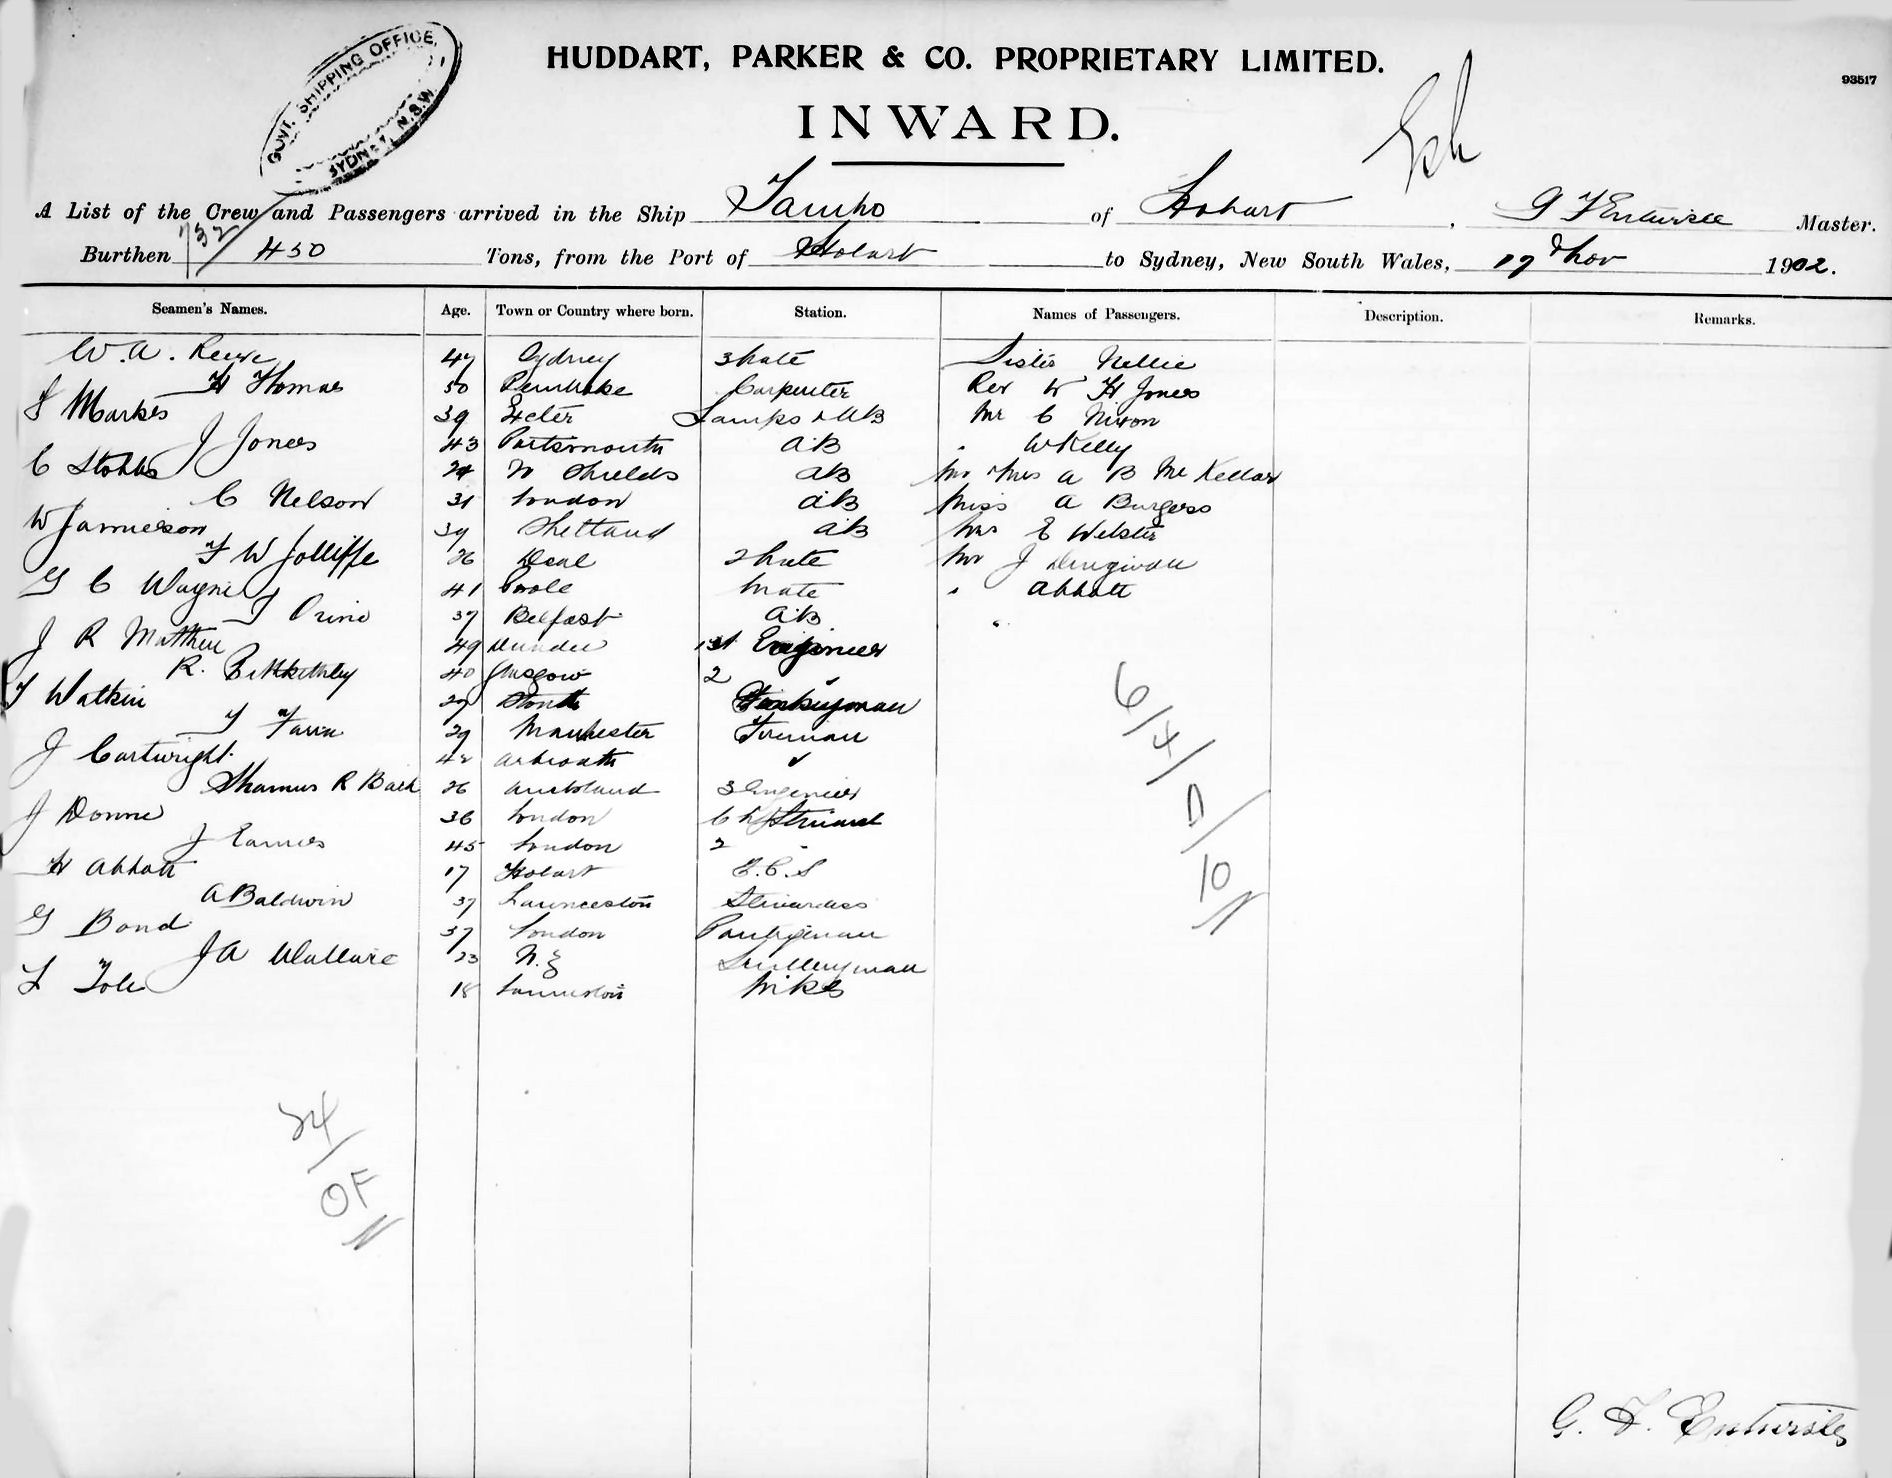 GOVT. SHIPPING OFFICE,
SYDNEY, N.S.W.
HUDDART, PARKER & CO. PROPRIETARY LIMITED.
93517
INWARD.
A List of the Crew and Passengers arrived in the Ship of Hobart, G F Entwisle Master.
Burthen 732/ 450 Tons, from the Port of Hobart to Sydney, New South Wales, 19 Nov 1902.
Seamen's Names. Age. Town or Country where born. Station. Names of Passengers. Description. Remarks.
W. A. 47 Sydney 3 Mate Sister Nellie
H Thomas 50 Pembroke Carpenter Rev W H Jones
Markes 39 Exeter Lamps & AB Mr C Nixon
J Jones 43 Portsmouth AB " W Kelly
C Stobbs 24 N Shields AB Mr & Mrs A B McKellar
C Nelson 31 London AB Miss A Burgess
W Jamieson 39 Shetland AB Mrs E Webster
F W Jolliffe 26 Deal 2 Mate Mr J
G C Wayne 41 Poole Mate " Abbott
37 Belfast AB "
J R Matthew 49 Dundee 1st Engineer
R. 40 Glasgow 2 "
T Watkin 29 Donkeyman
29 Manchester Fireman
J Cartwright 42 Arbroath "
R 26 Auckland 3 Engineer
J 36 London Ch Steward
J Eames 45 London 2 "
H Abbott 17 Hobart
A Baldwin 37 Launceston Stewardess
G Bond 37 London Pantryman
J A Wallace 23 N.Z Sculleryman
18 Launceston
6/4/
D/
10
24/
OF
G. F. Entwisle